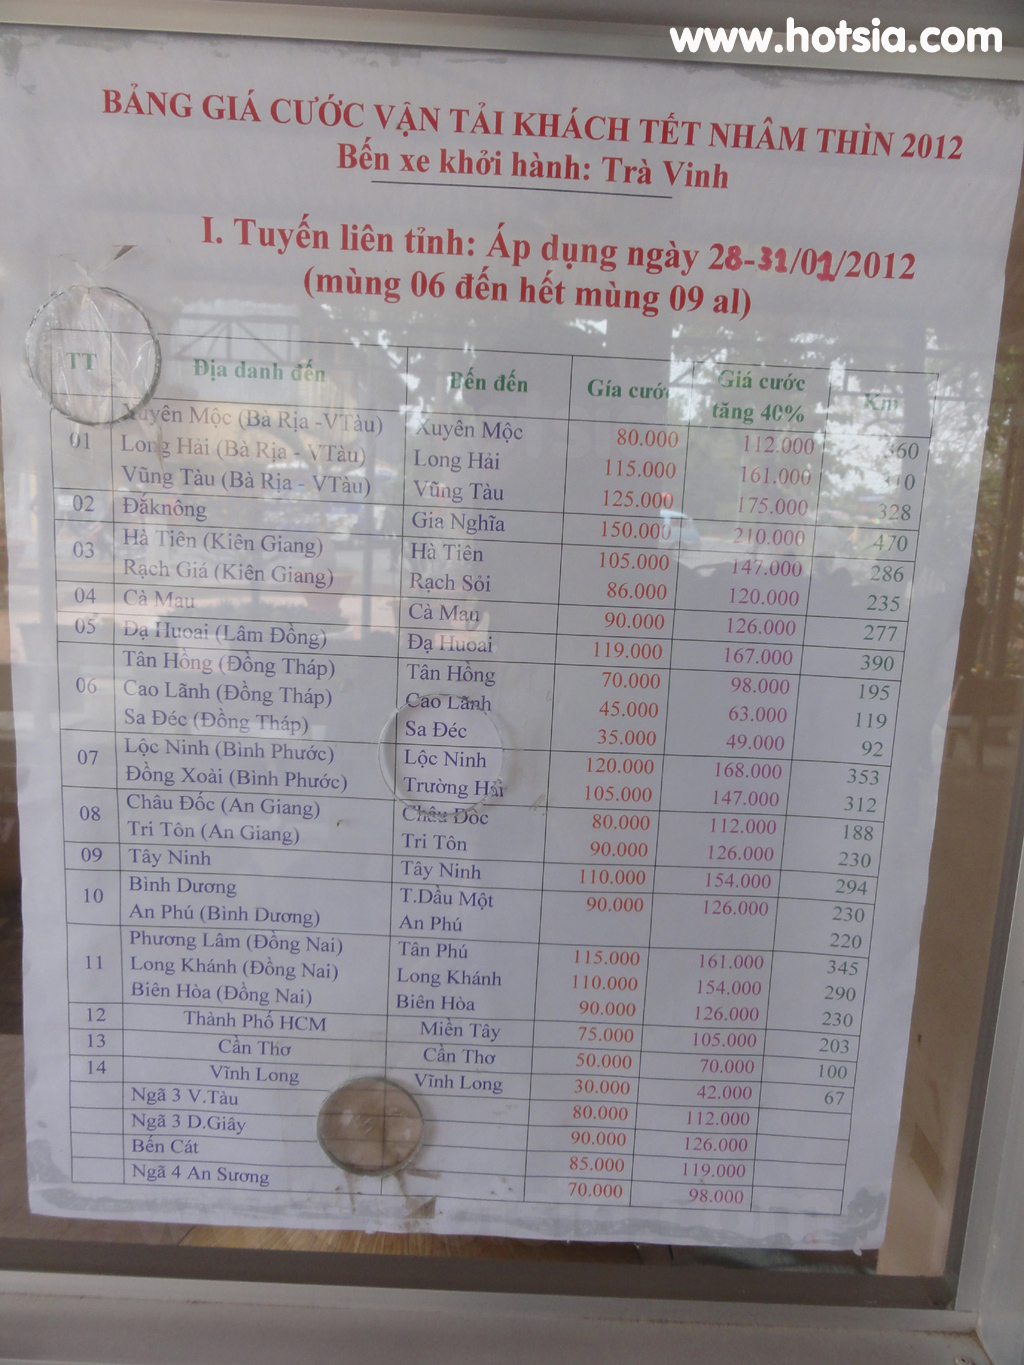 www.hotsia.com
BẢNG GIÁ CƯỚC VẬN TẢI KHÁCH TẾT NHÂM THÌN 2012
Bến xe khởi hành: Trà Vinh
I. Tuyến liên tỉnh: Áp dụng ngày 28-31/01/2012
(mùng 06 đến hết mùng 09 al)
TT Địa danh đến Bến đến Gía cước Giá cước tăng 40% Km
01 Xuyên Mộc (Bà Rịa -VTàu) Xuyên Mộc 80.000 112.000 360
Long Hải (Bà Rịa - VTàu) Long Hải 115.000 161.000 310
Vũng Tàu (Bà Rịa - VTàu) Vũng Tàu 125.000 175.000 328
02 Đắknông Gia Nghĩa 150.000 210.000 470
03 Hà Tiên (Kiên Giang) Hà Tiên 105.000 147.000 286
Rạch Giá (Kiên Giang) Rạch Sỏi 86.000 120.000 235
04 Cà Mau Cà Mau 90.000 126.000 277
05 Dạ Huoai (Lâm Đồng) Đạ Huoai 119.000 167.000 390
06 Tân Hồng (Đồng Tháp) Tân Hồng 70.000 98.000 195
Cao Lãnh (Đồng Tháp) Cao Lãnh 45.000 63.000 119
Sa Đéc (Đồng Tháp) Sa Đéc 35.000 49.000 92
07 Lộc Ninh (Bình Phước) Lộc Ninh 120.000 168.000 353
Đồng Xoài (Bình Phước) Trường Hải 105.000 147.000 312
08 Châu Đốc (An Giang) Châu Đốc 80.000 112.000 188
Tri Tôn (An Giang) Tri Tôn 90.000 126.000 230
09 Tây Ninh Tây Ninh 110.000 154.000 294
10 Bình Dương T.Dầu Một 90.000 126.000 230
An Phú (Bình Dương) An Phú 220
11 Phương Lâm (Đồng Nai) Tân Phú 115.000 161.000 345
Long Khánh (Đồng Nai) Long Khánh 110.000 154.000 290
Biên Hòa (Đồng Nai) Biên Hòa 90.000 126.000 230
12 Thành Phố HCM Miền Tây 75.000 105.000 203
13 Cần Thơ Cần Thơ 50.000 70.000 100
14 Vĩnh Long Vĩnh Long 30.000 42.000 67
Ngã 3 V.Tàu 80.000 112.000
Ngã 3 D.Giây 90.000 126.000
Bến Cát 85.000 119.000
Ngã 4 An Sương 70.000 98.000